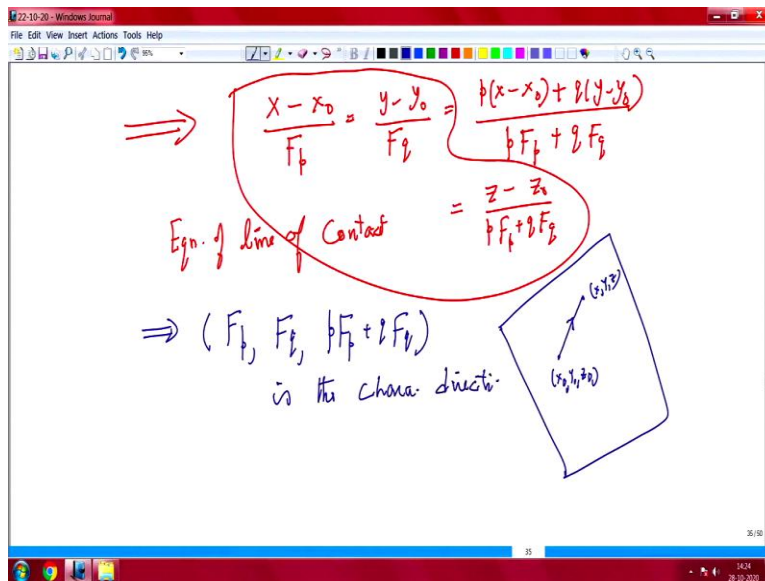 22-10-20 - Windows Journal
File Edit View Insert Actions Tools Help
95%
⟹ (x - x₀)/F_p = (y - y₀)/F_q = (p(x-x₀) + q(y-y₀))/(pF_p + qF_q)
= (z - z₀)/(pF_p + qF_q)
Eqn. of line of Contact
(x,y,z)
⟹ (F_p, F_q, pF_p + qF_q)
(x₀,y₀,z₀)
is the chara. directi.
35/50
35
14:24
28-10-2020